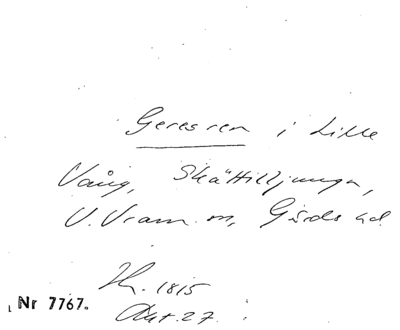 Geresren i Lille
Vång, Skättilljunga,
V. Vram sn, Gärds hd.
Hr. 1815
Akt. 27.
Nr 7767.